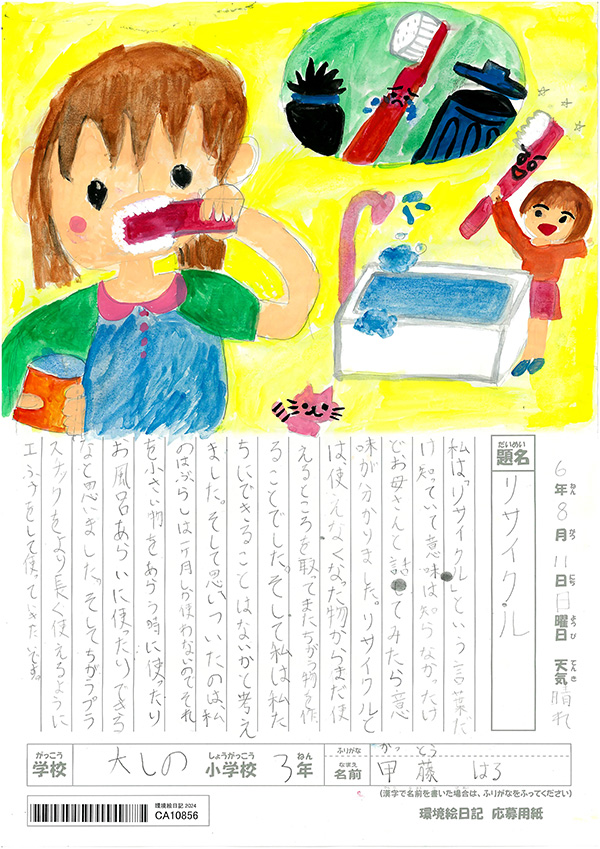 6年8月11日日曜日 天気晴れ
ねん がつ にち ようび てんき
だいめい
題名
リサイクル
私は「リサイクル」という言葉だ
け知っていて意味は知らなかったけ
どお母さんと話してみたら意
味が分かりました。リサイクルと
は使えなくなった物からまだ使
えるところを取ってまたちがう物を作
ることでした。そして私は私た
ちにできることはないかと考え
ました。そして思いついたのは、私
のはぶらしは一ヶ月しか使わないのでそれ
を小さい物をあらう時に使ったり
お風呂あらいに使ったりできる
なと思いました。そしてちがうプラ
スチックをより長く使えるように
工ふうをして使っていきたいです。
がっこう しょうがっこう ねん
学校 大しの 小学校 3年
ふりがな かっ とう
なまえ
名前 甲藤 はる
(漢字で名前を書いた場合は、ふりがなをふってください)
環境絵日記 2024
CA10856
環境絵日記 応募用紙